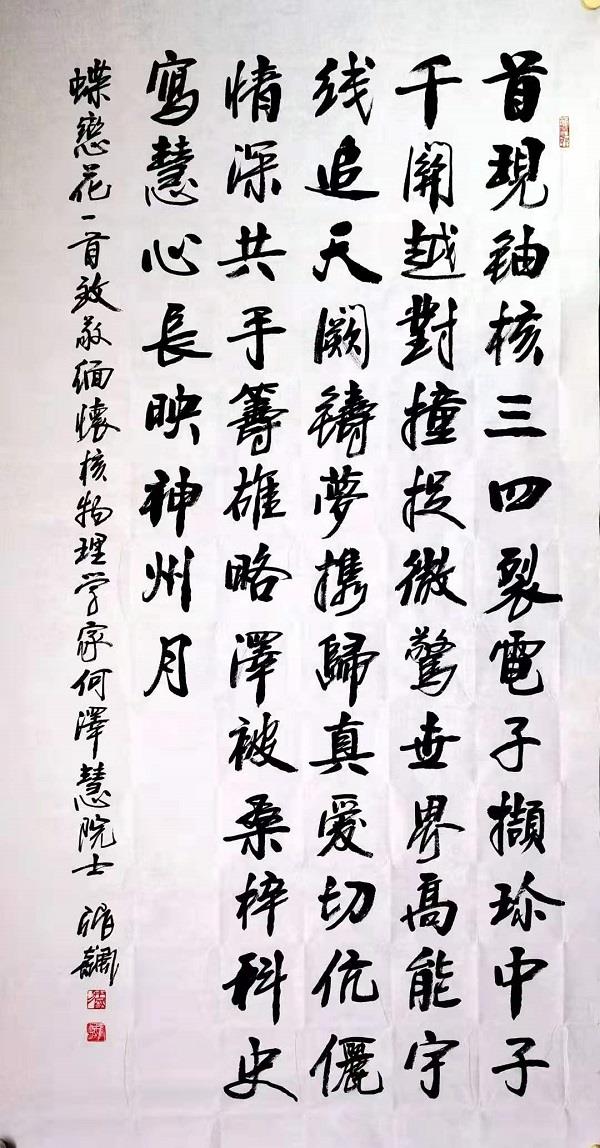 首現鈾核三四裂電子擷珍中子
千關越對撞捉微驚世界高能宇
线追天闕鑄夢攜歸真爱切伉儷
情深共手籌雄略澤被桑梓科史
寫慧心長映神州月
蝶戀花一首致敬缅懷核物理学家何澤慧院士